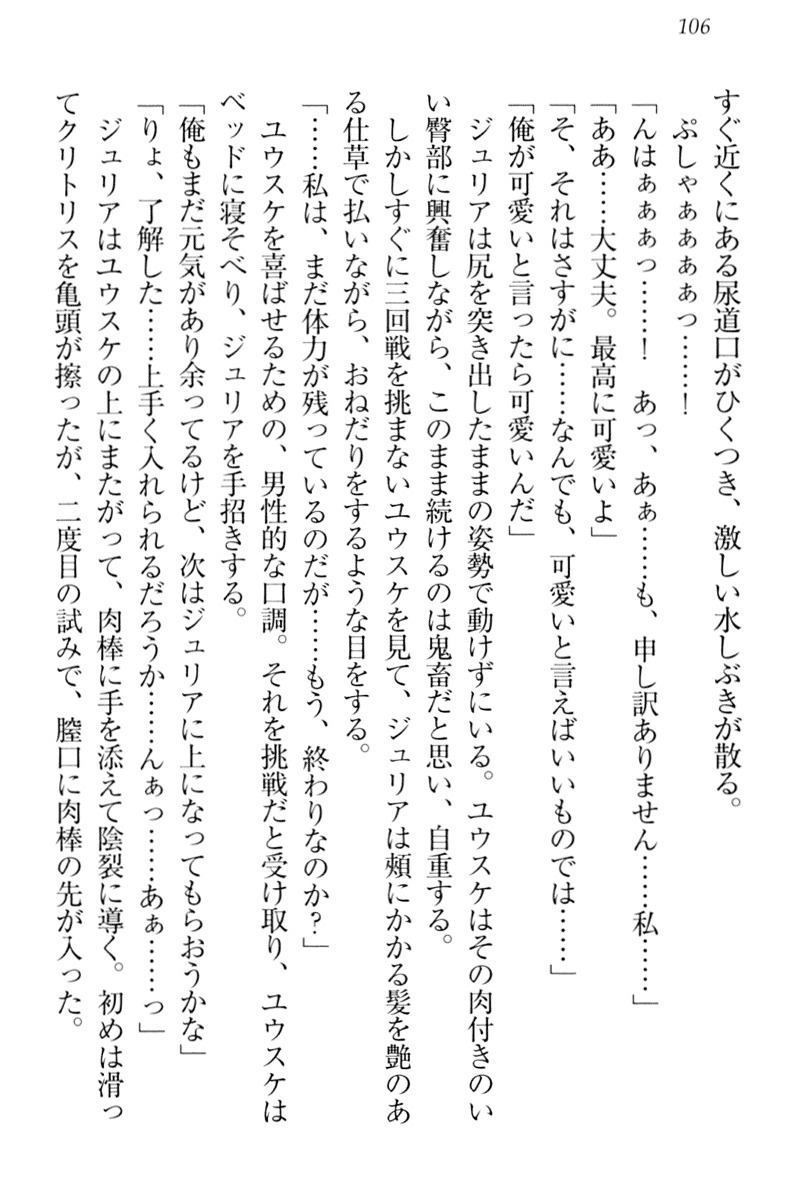 106
すぐ近くにある尿道口がひくつき、激しい水しぶきが散る。
ぷしゃぁぁぁぁっ……!
「んはぁぁぁっ……! あっ、あぁ……も、申し訳ありません……私……」
「ああ……大丈夫。最高に可愛いよ」
「そ、それはさすがに……なんでも、可愛いと言えばいいものでは……」
「俺が可愛いと言ったら可愛いんだ」
ジュリアは尻を突き出したままの姿勢で動けずにいる。ユウスケはその肉付きのい
い臀部に興奮しながら、このまま続けるのは鬼畜だと思い、自重する。
しかしすぐに三回戦を挑まないユウスケを見て、ジュリアは頬にかかる髪を艶のあ
る仕草で払いながら、おねだりをするような目をする。
「……私は、まだ体力が残っているのだが……もう、終わりなのか?」
ユウスケを喜ばせるための、男性的な口調。それを挑戦だと受け取り、ユウスケは
ベッドに寝そべり、ジュリアを手招きする。
「俺もまだ元気があり余ってるけど、次はジュリアに上になってもらおうかな」
「りょ、了解した……上手く入れられるだろうか……んぁっ……あぁ……っ」
ジュリアはユウスケの上にまたがって、肉棒に手を添えて陰裂に導く。初めは滑っ
てクリトリスを亀頭が擦ったが、二度目の試みで、膣口に肉棒の先が入った。